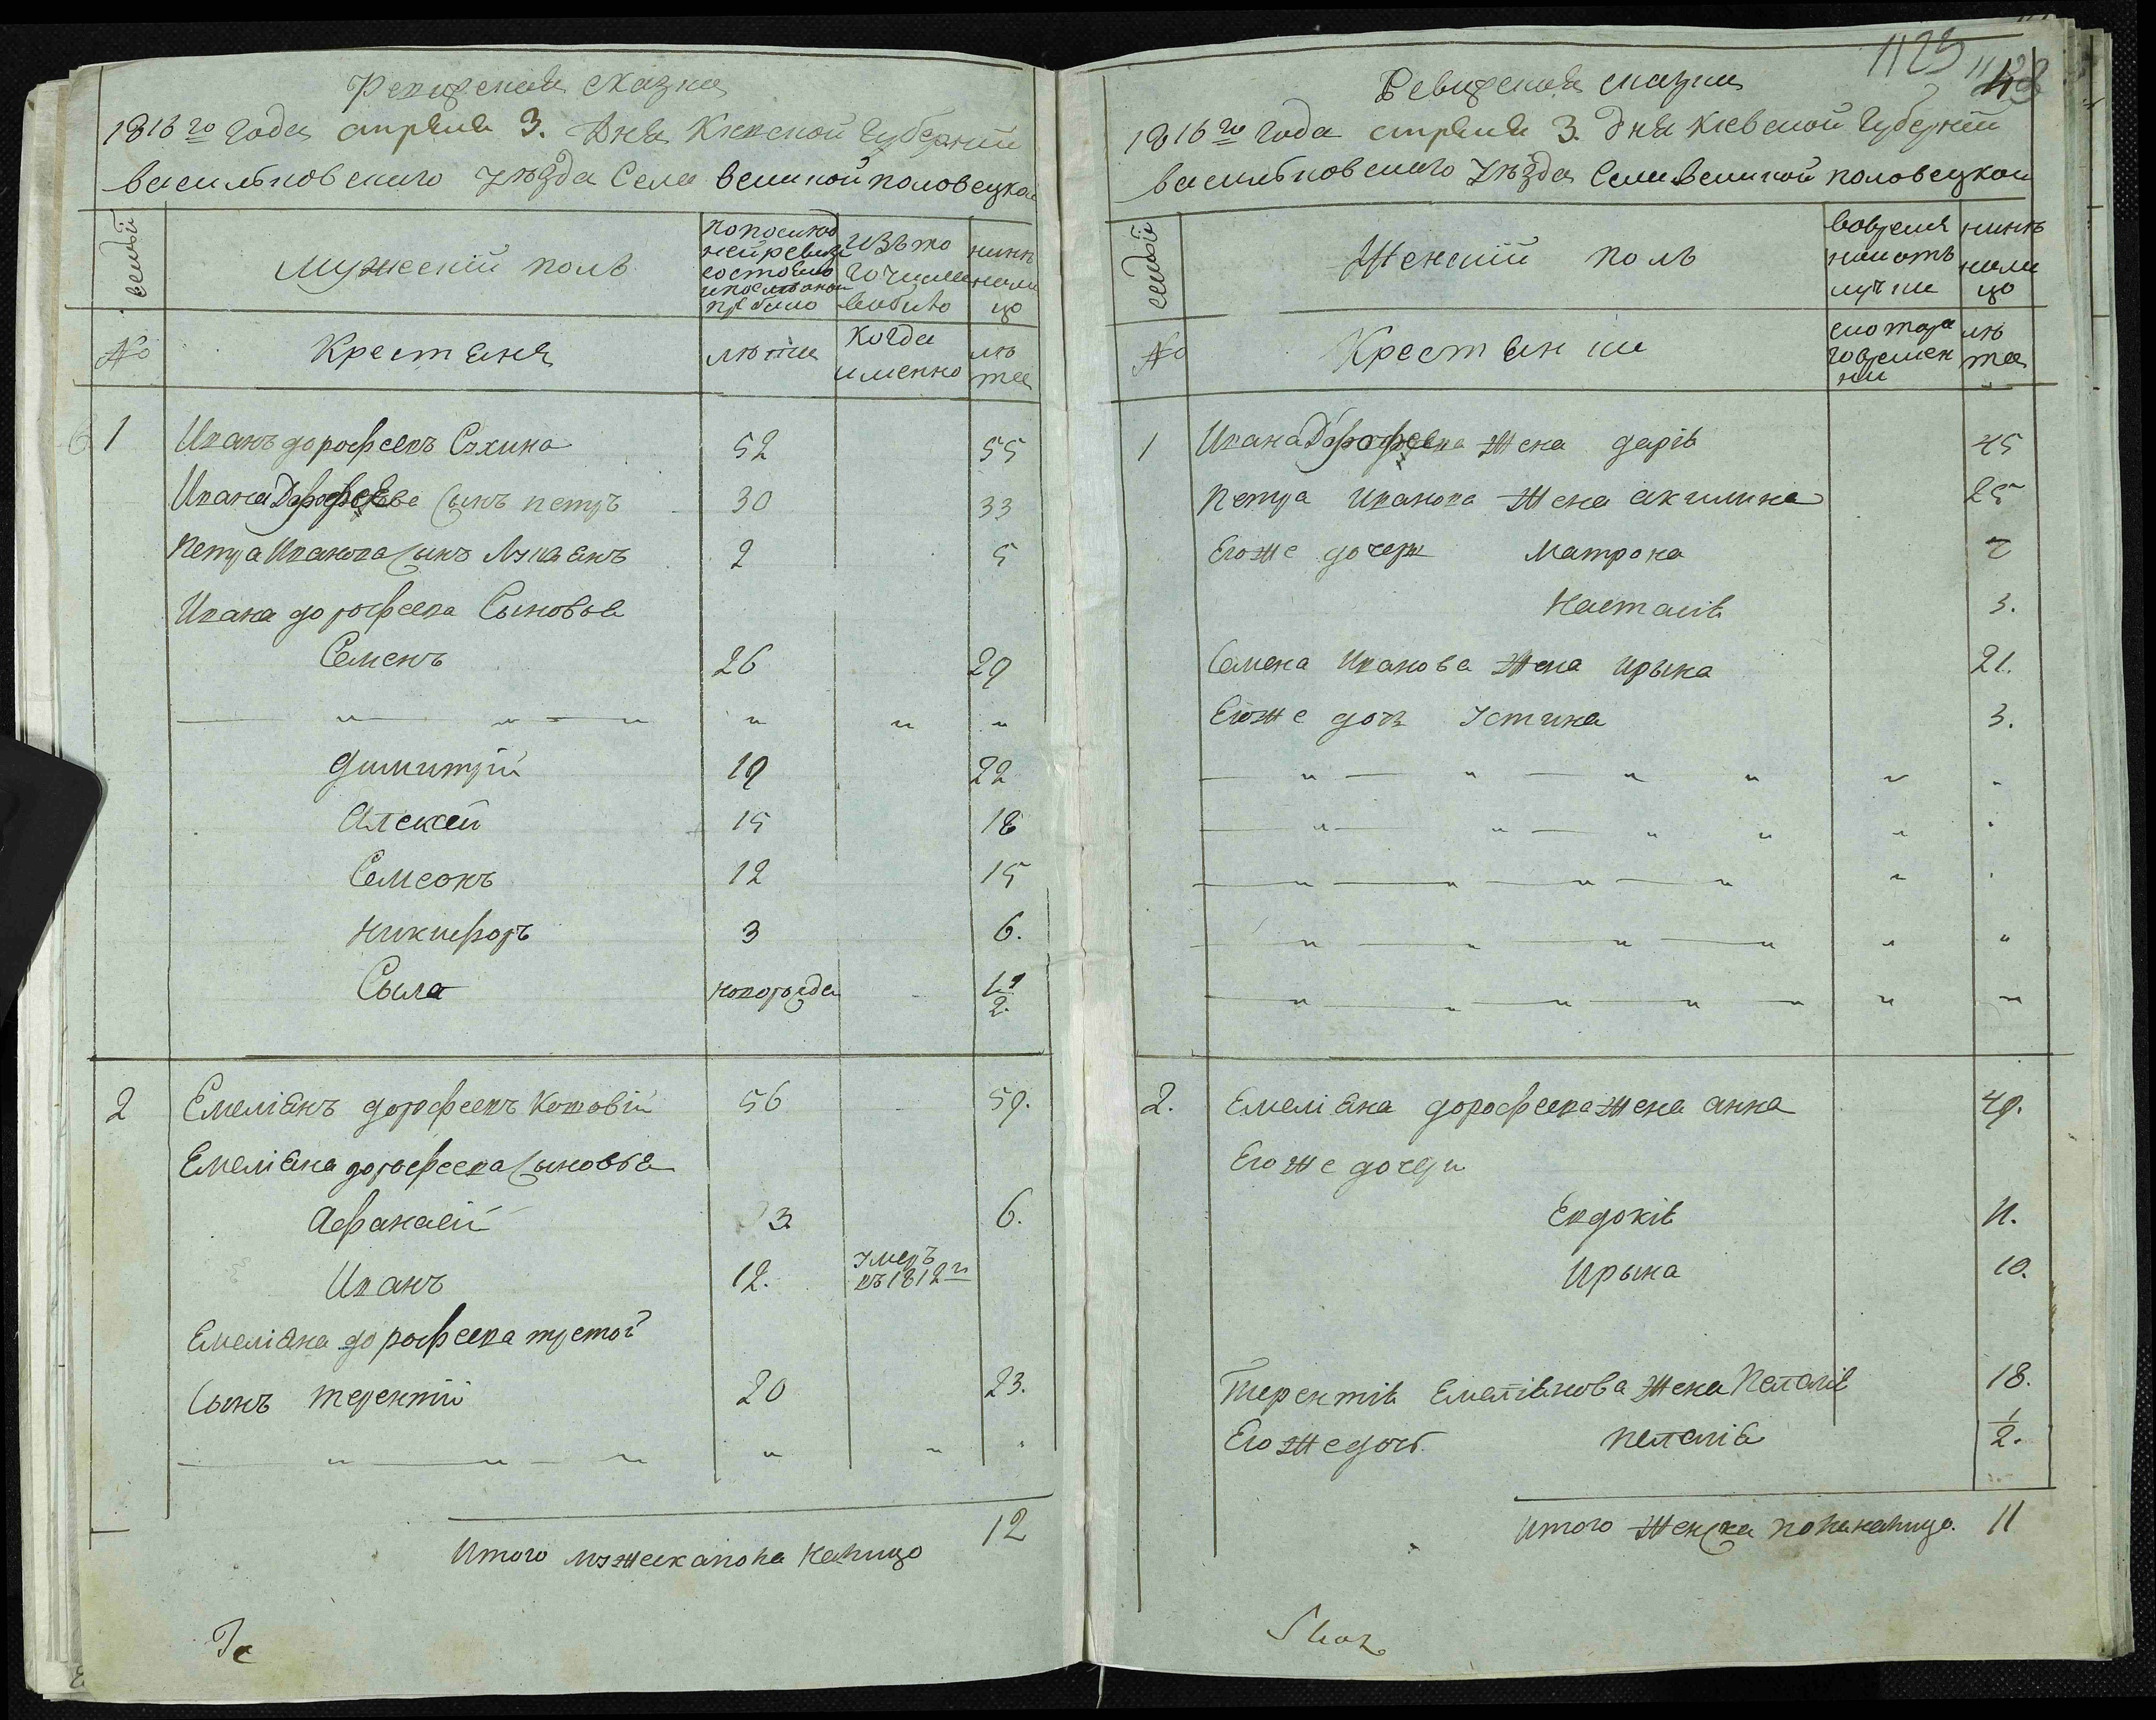 Ревизская сказка
1816го года апреля 3. Дня Киевской губернии
васильковского уѣзда Села великой половецкой
семьи
Мужеский полъ
По последней ревизии состояло и после оной прибыло
Изъ того числа выбыло
ныне налицо
№
Крестьяне
лѣта
Когда именно
лѣта
1 Иванъ дорофеевъ Сахино 52 55
Ивана Дорофеева Сынъ петръ 30 33
Петра Иванова Сынъ Лукьянъ 2 5
Ивана дорофеева Сыновья
Семенъ 26 29
Димитрій 19 22
Алексей 15 18
Семеонъ 12 15
Никифоръ 3 6.
Сыла новорожде 1 1/2.
2 Емеліянъ дорофеевъ Кошовій 56 59.
Емеліяна дорофеева Сыновья
Афанасій 3 6.
Иванъ 12. умеръ въ 1812 г
Емеліяна дорофеева третой
Сынъ терентій 20 23.
Итого мужеска пола налицо 12
1123
4
Ревизская сказка
1816го года апреля 3. Дня Киевской губернии
васильковского уѣзда Села великой половецкой
семьи
Женский полъ
Вовремя наотлучки
ныне налицо
№
Крестьянки
с которого времени
лѣта
1 Ивана Дорофеева Жена дарія 45
Петра Иванова Жена акилина 25
Егоже дочери Матрона 7
Настасія 3.
Семена Иванова Жена Ирына 21.
Егоже дочь Устина 3.
2. Емеліяна дорофеева жена анна 49.
Егоже дочери
Евдокія 11.
Ирына 10.
Терентія Емеліянова Жена Пелагія 18.
Егоже дочь пелагія 1/2.
Итого Женска пола налицо. 11